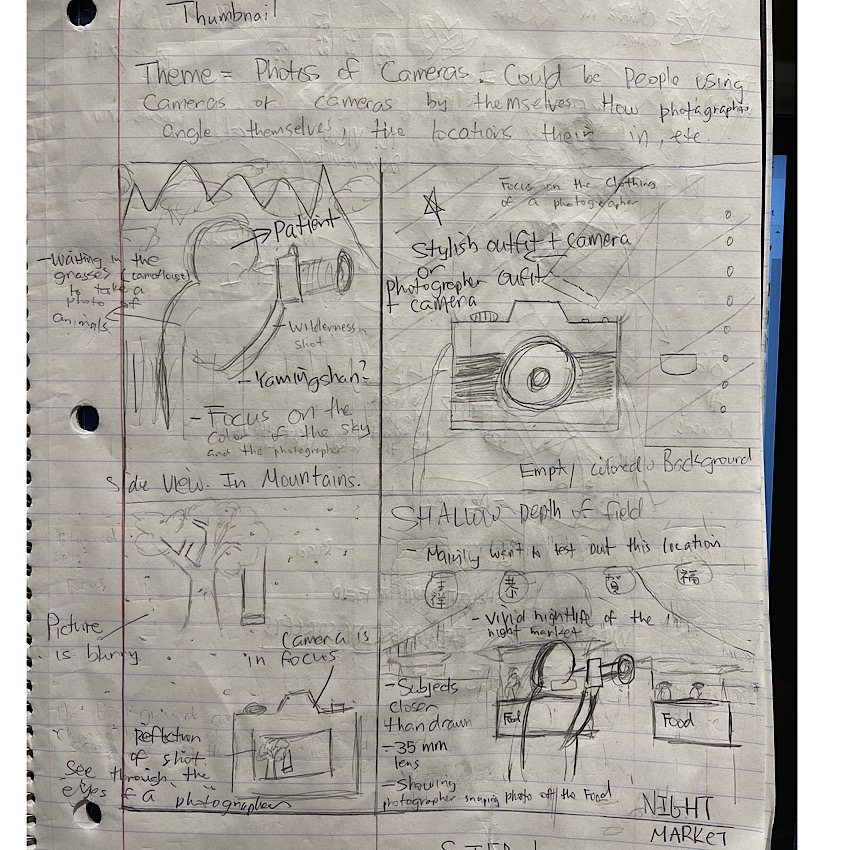 Thumbnail
Theme = Photos of Cameras. Could be people using
Cameras or cameras by themselves. How photographers
angle themselves, the locations their in, etc.
Patient
- Waiting in the
grasses
to take a
photo of
animals
- Wilderness
shot
- Yamingshan?
- Focus on the
color of the sky
and the photographer
Side view. In Mountains.
Focus on the clothing
of a photographer
Stylish outfit + camera
or
photographer oufit
+ camera
Empty/colored Background
Picture
is blurry
Camera is
in focus
Reflection
of shot.
See through the
eyes of a photographer
SHALLOW Depth of field
- Mainly want to test out this location
恭
賀
福
- Vivid nightlife of the
night market
- Subjects
closer
than drawn
- 35 mm
lens
- Showing
photographer snaping photo off the Food
Food
Food
NIGHT
MARKET